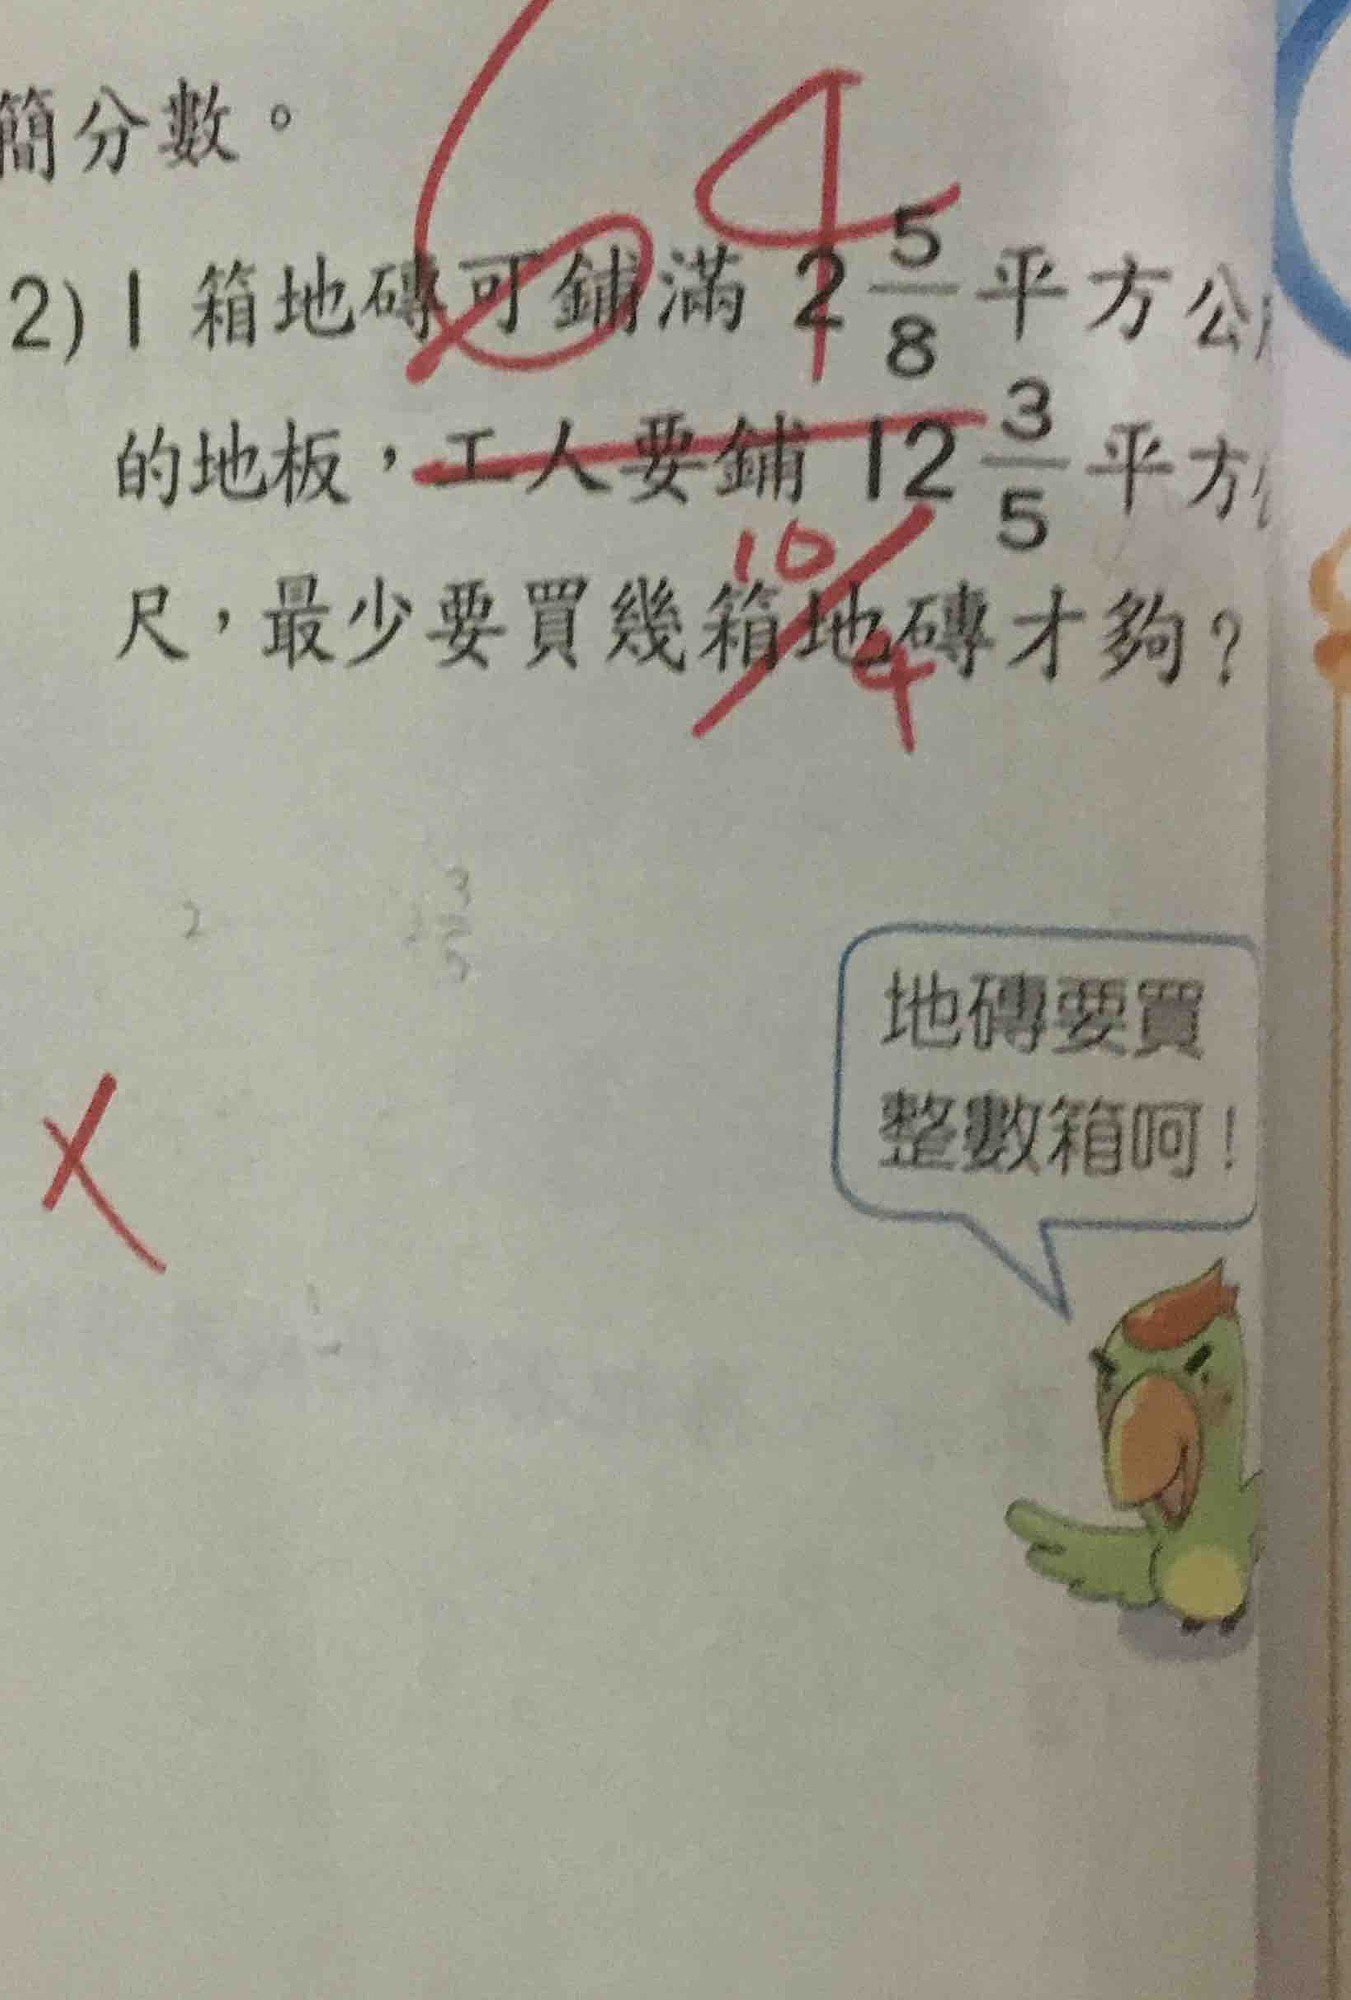 簡分數。
2) 1 箱地磚可鋪滿 2 5/8 平方公
的地板，工人要鋪 12 3/5 平方
尺，最少要買幾箱地磚才夠？
64
10/4
2 3/5
地磚要買
整數箱呵！